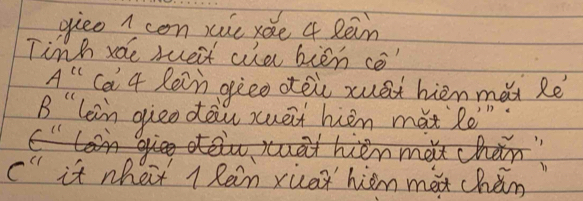 gieo 1 con xúc xắc 4 lần
Tính xác suất của biến cố
A "Cả 4 lần gieo đều xuất hiện mặt lẻ
B "lần gieo đầu xuất hiện mặt lẻ".
C "Lần gieo đầu xuất hiện mặt chẵn"
C "ít nhất 1 lần xuất hiện mặt chẵn"